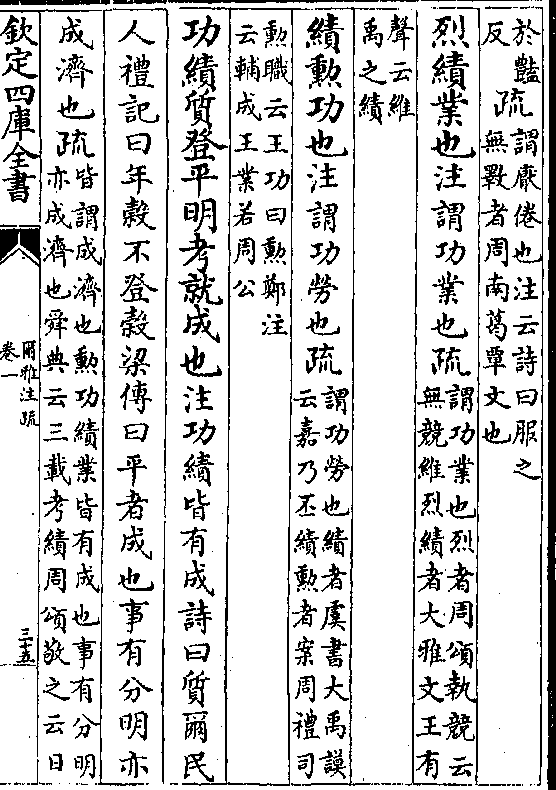 於豔
反
疏
謂厭倦也注云詩曰服之
無斁者周南葛覃文也
烈績業也注謂功業也疏
謂功業也烈者周頌執競云
無競維烈績者大雅文王有
聲云維
禹之績
績勳功也注謂功勞也疏
謂功勞也績者虞書大禹謨
云嘉乃丕績勳者案周禮司
勳職云王功曰勳鄭注
云輔成王業若周公
功績質登平明考就成也注功績皆有成詩曰質爾民
人禮記曰年榖不登榖梁傳曰平者成也事有分明亦
成濟也疏
皆謂成濟也勳功績業皆有成也事有分明
亦成濟也舜典云三載考績周頌敬之云日
欽定四庫全書
爾雅注疏
卷一
三十五